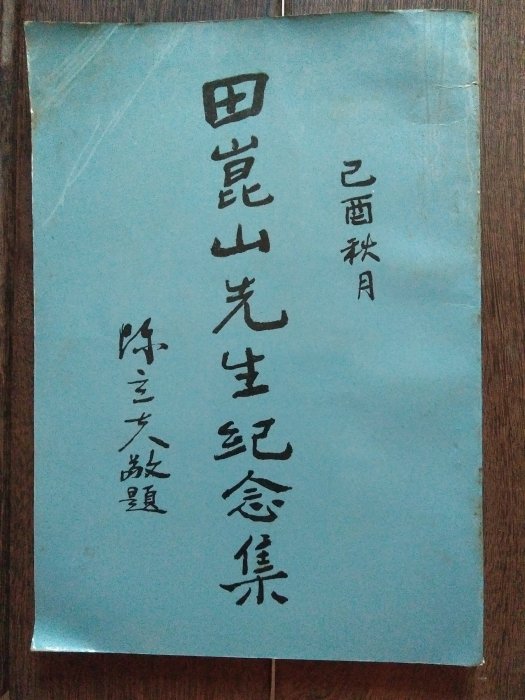 己酉秋月
田崑山先生紀念集
陳立夫敬題